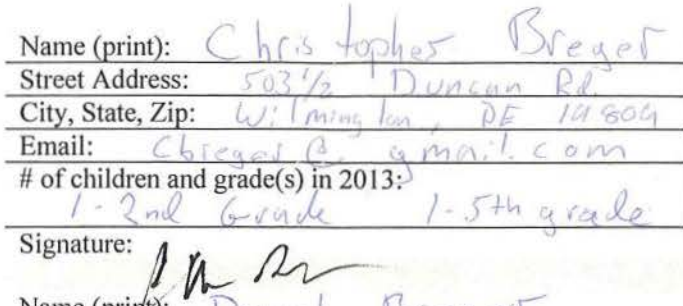 Name (print): Christopher Breger
Street Address: 503 1/2 Duncan Rd.
City, State, Zip: Wilmington, DE 19809
Email: Cbreger@. gmail.com
# of children and grade(s) in 2013:
1-2nd Grade 1-5th grade
Signature:
Name (print):